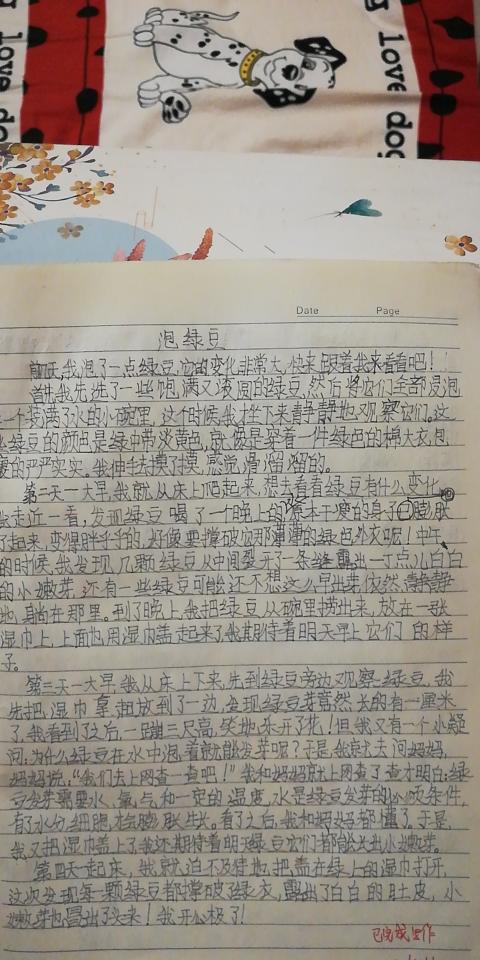 g love dog
love dog
Date Page
泡绿豆
前天,我泡了一点绿豆,它的变化非常大,快来跟着我来看看吧!
首先,我先选了一些饱满又滚圆的绿豆,然后将它们全部浸泡
一个装满了水的小碗里,这个时候,我坐下来静静地观察它们。这
些绿豆的颜色是绿中带淡黄色,就像是穿着一件绿色的棉大衣,包
裹的严严实实。我伸手去摸了摸,感觉滑溜溜的。
第二天一大早,我就从床上爬起来,想去看看绿豆有什么变化,
走近一看,发现绿豆喝了一个晚上的水,原本干瘦的身子膨胀
了起来,变得胖乎乎的,好像要撑破它那薄薄的绿色外衣呢!中午
的时候,我发现,几颗绿豆从中间裂开了一条缝,露出一丁点儿白白
的小嫩芽,还有一些绿豆可能还不想这么早出芽,依然静静
地躺在那里。到了晚上,我把绿豆从碗里捞出来,放在一张
湿巾上,上面也用湿巾盖起来了,我期待着明天早上它们的样
子。
第三天一大早,我从床上下来,先到绿豆旁边观察绿豆,我
先把湿巾拿起放到了一边,发现绿豆芽竟然长的有一厘米
了,我看到了之后,一蹦三尺高,笑地乐开了花!但我又有一个小疑
问:为什么绿豆在水中泡着就能发芽呢?于是,我就去问妈妈,
妈妈说:“我们去上网查一查吧!”我和妈妈就上网查了查才明白:绿
豆发芽需要水、氧气和一定的温度,水是绿豆发芽的必须条件,
有了水分,细胞才会膨胀生长。看了之后,我和妈妈都懂了,于是,
我又把湿巾盖上了,我还期待着明天绿豆它们都能长出小嫩芽。
第四天一起床,我就迫不及待地把盖在绿豆上的湿巾打开,
这次发现每一颗绿豆都撑破了绿衣,露出了白白的肚皮,小
嫩芽也冒出了头来!我开心极了!
已完成